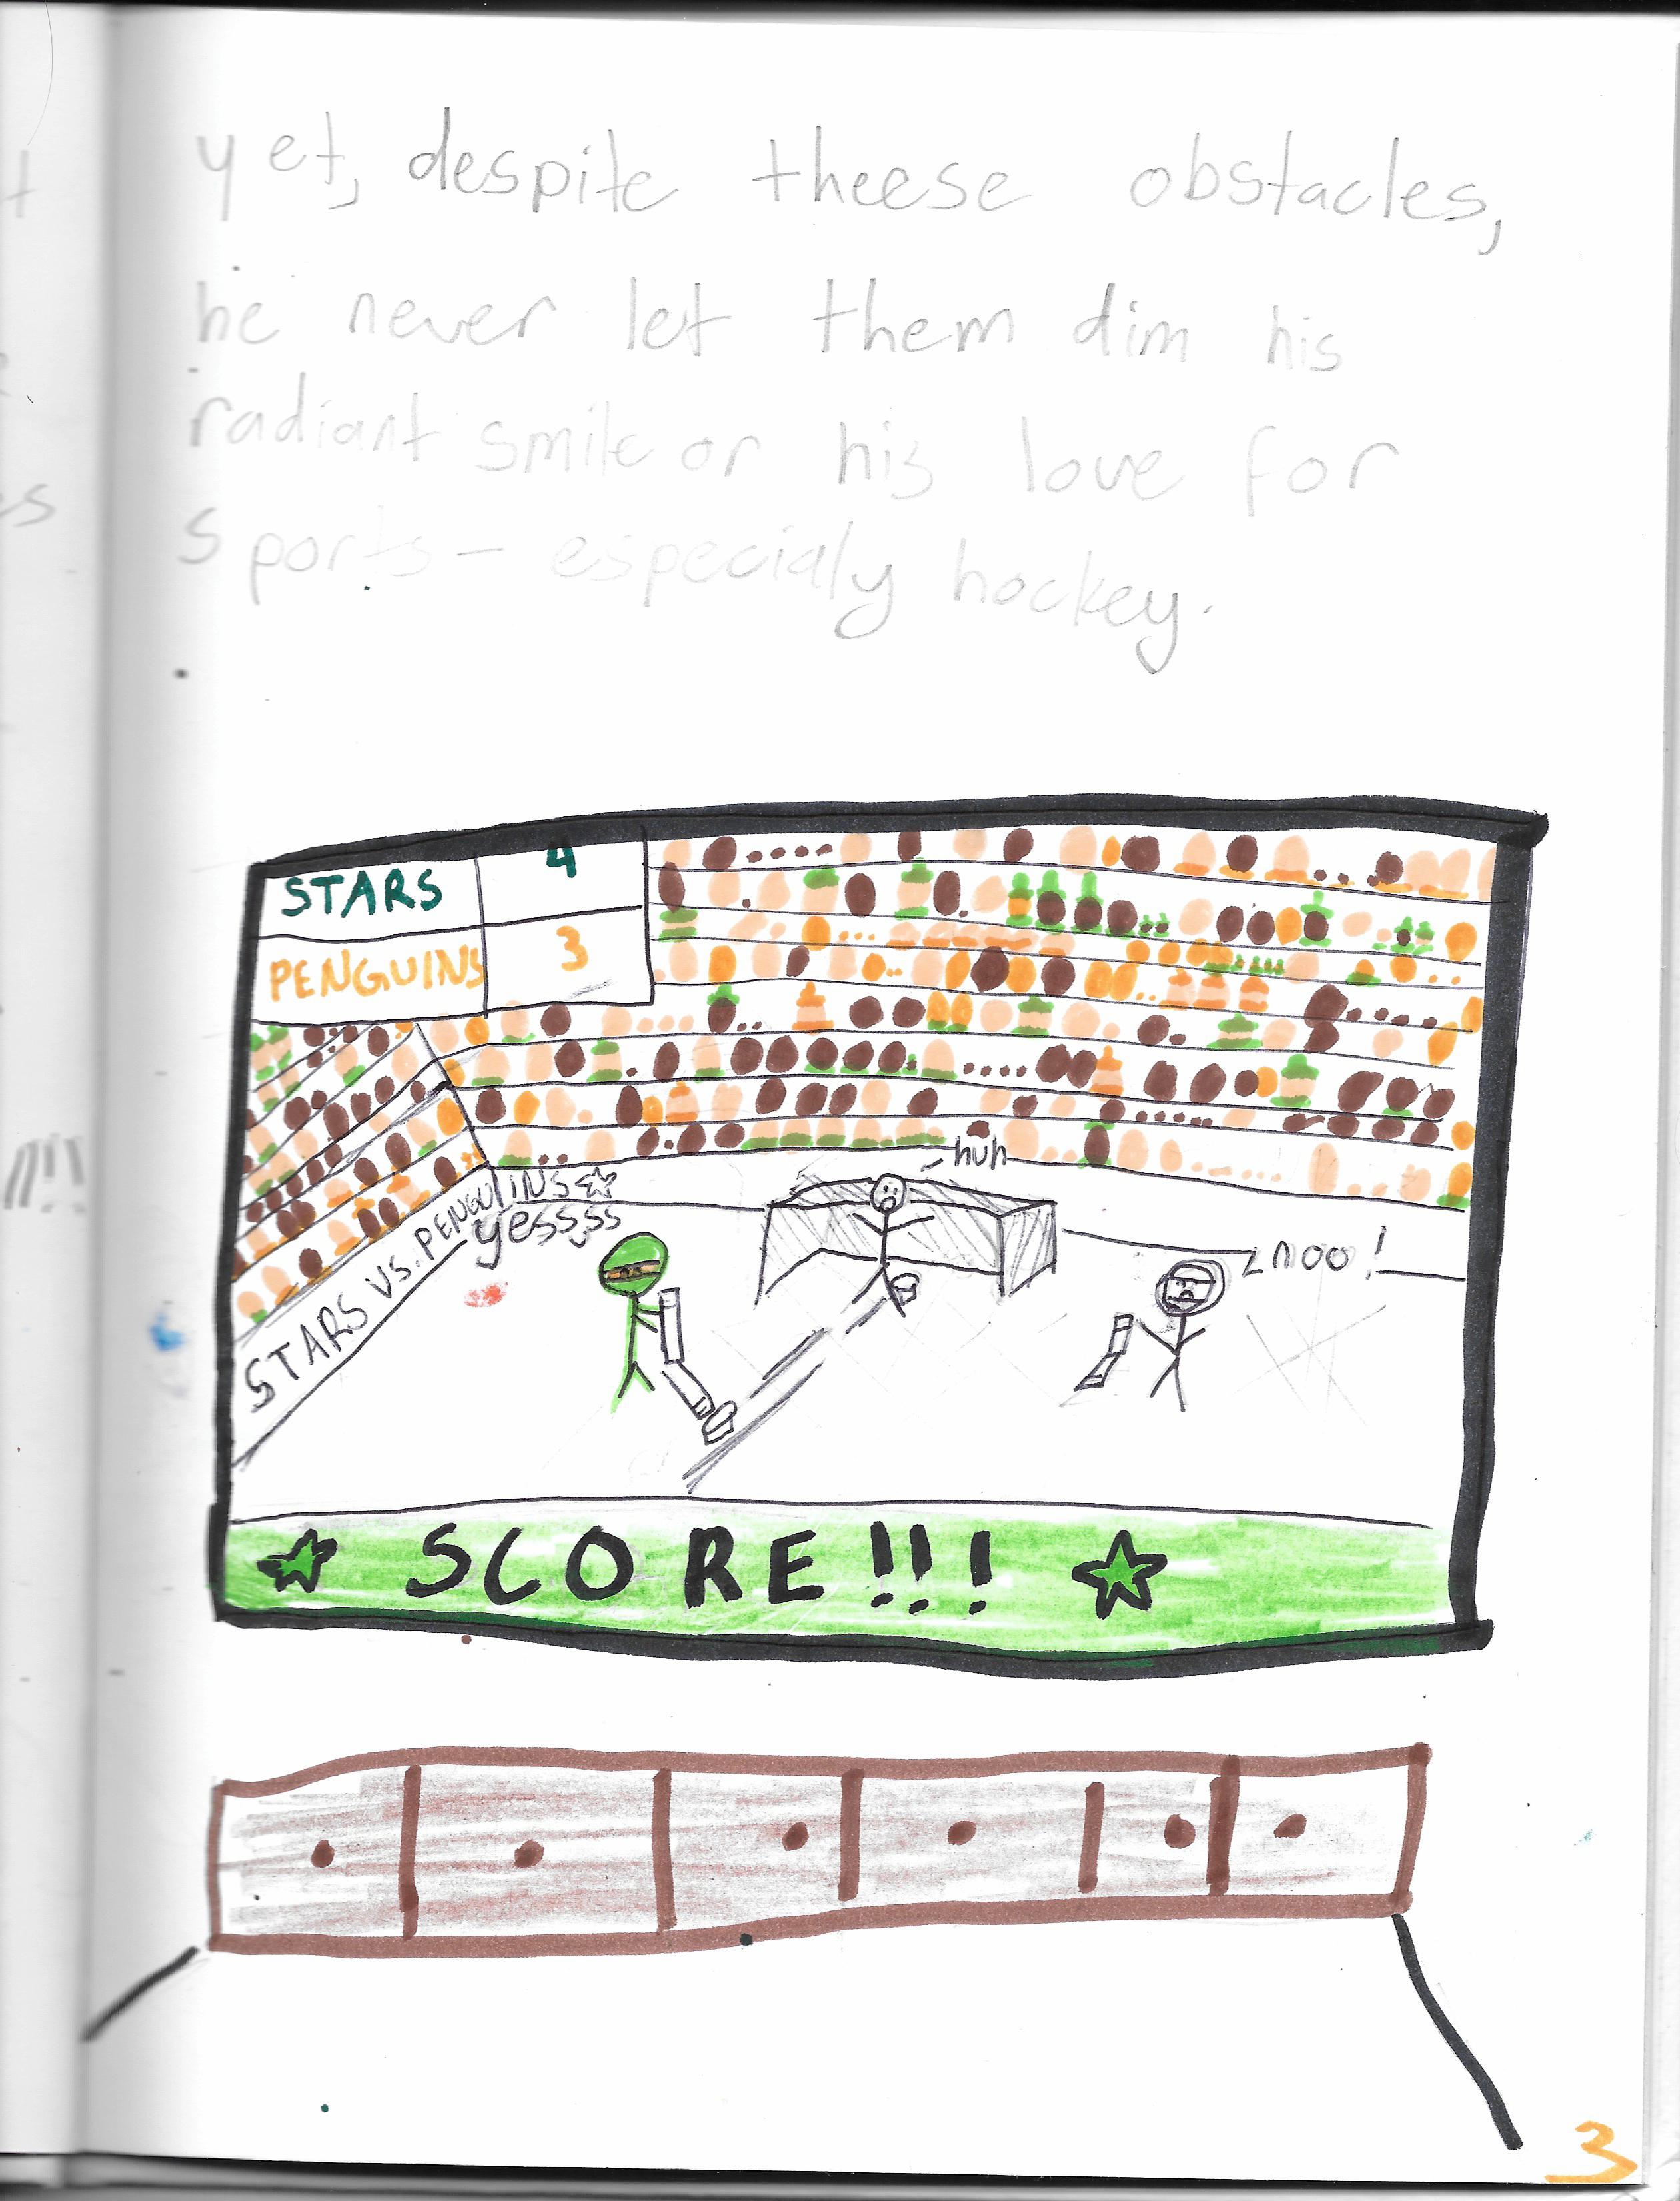 yet, despite theese obstacles,
he never let them dim his
radiant smile or his love for
sports - especialy hockey.
STARS 4
PENGUINS 3
huh
STARS VS. PENGUINS
yessss
nooo!
SCORE!!!
3